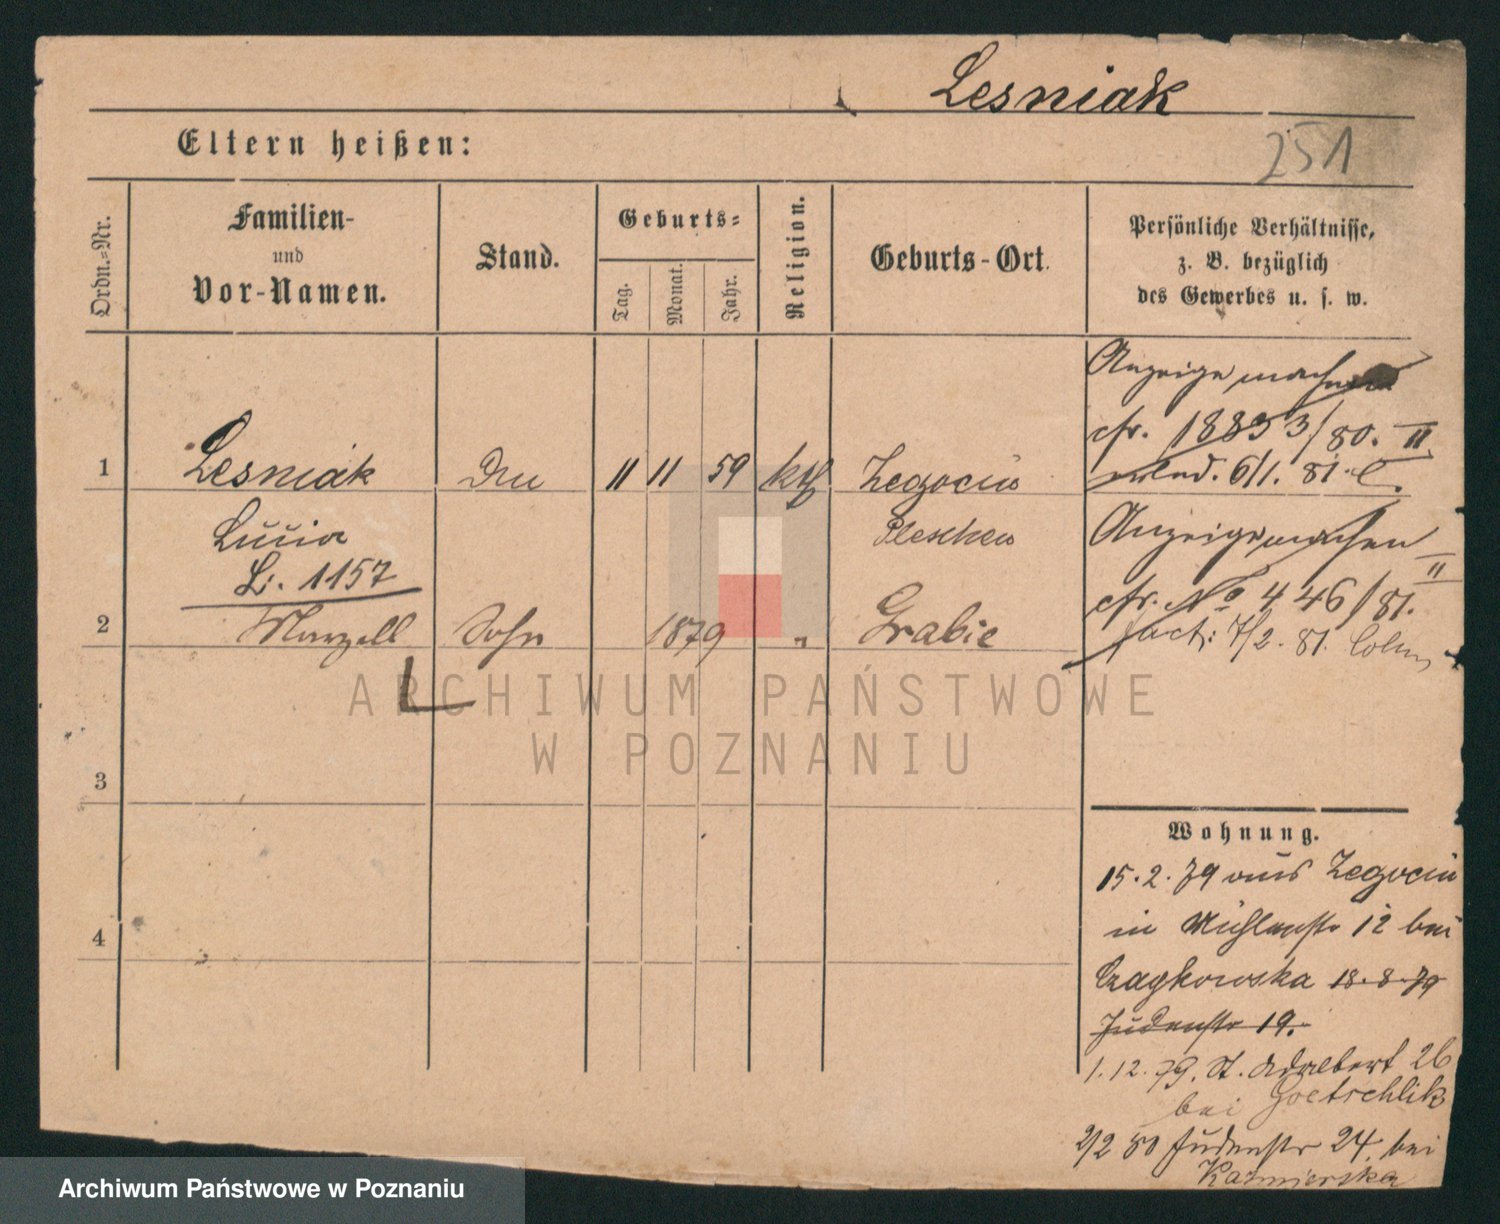 Lesniak
Eltern heißen:
251
Ordn.-Nr.
Familien-
und
Vor-Namen.
Stand.
Geburts-
Tag.
Monat.
Jahr.
Religion.
Geburts-Ort.
Persönliche Verhältnisse,
z. B. bezüglich
des Gewerbes u. s. w.
Anzeige machen
cfr. 18853/80. II
6/1. 81.
1 Lesniak 11 11 59 kth Zegocin
Lucia Pleschen
L. 1157
Anzeige machen
II
cfr. No 446/81.
2 Marzell Sohn 1879 " Grabie
fact: 7/2. 81.
3
4
Wohnung.
15. 2. 79 aus Zegocin
in Mühlenstr 12 bei
18. 8. 79
Judenstr 19.
1. 12. 79. St. Adalbert 26
bei Goetschlik
2/2 80 Judenstr 24. bei
Kaźmierska
ARCHIWUM PAŃSTWOWE
W POZNANIU
Archiwum Państwowe w Poznaniu